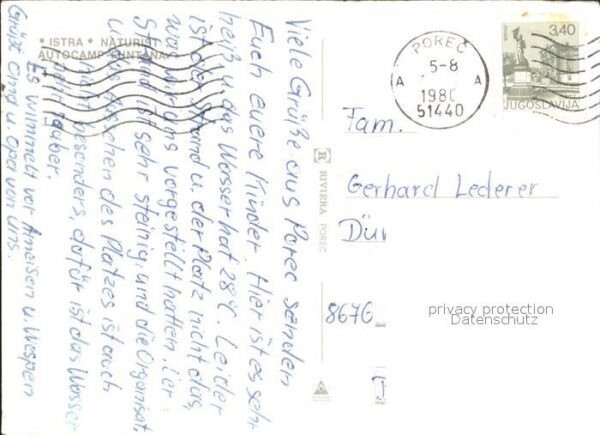 • ISTRA • NATURIST
AUTOCAMP
Viele Grüße aus Porec senden
Euch euere Kinder. Hier ist es sehr
heiß u. das Wasser hat 28°C. Leider
ist der Strand u. der Platz nicht das,
was wir uns vorgestellt hatten. Der
Strand ist sehr steinig und die Organisat.
u. die des Platzes ist auch
nicht besonders, dafür ist das Wasser
sehr sauber.
Es wimmelt vor Ameisen u. Wespen
Grüße Oma u. Opa von uns.
RIVIERA POREČ
POREČ
A 5-8 A
1980
51440
3,40
JUGOSLAVIJA
Fam.
Gerhard Lederer
Dür
8676
privacy protection
Datenschutz